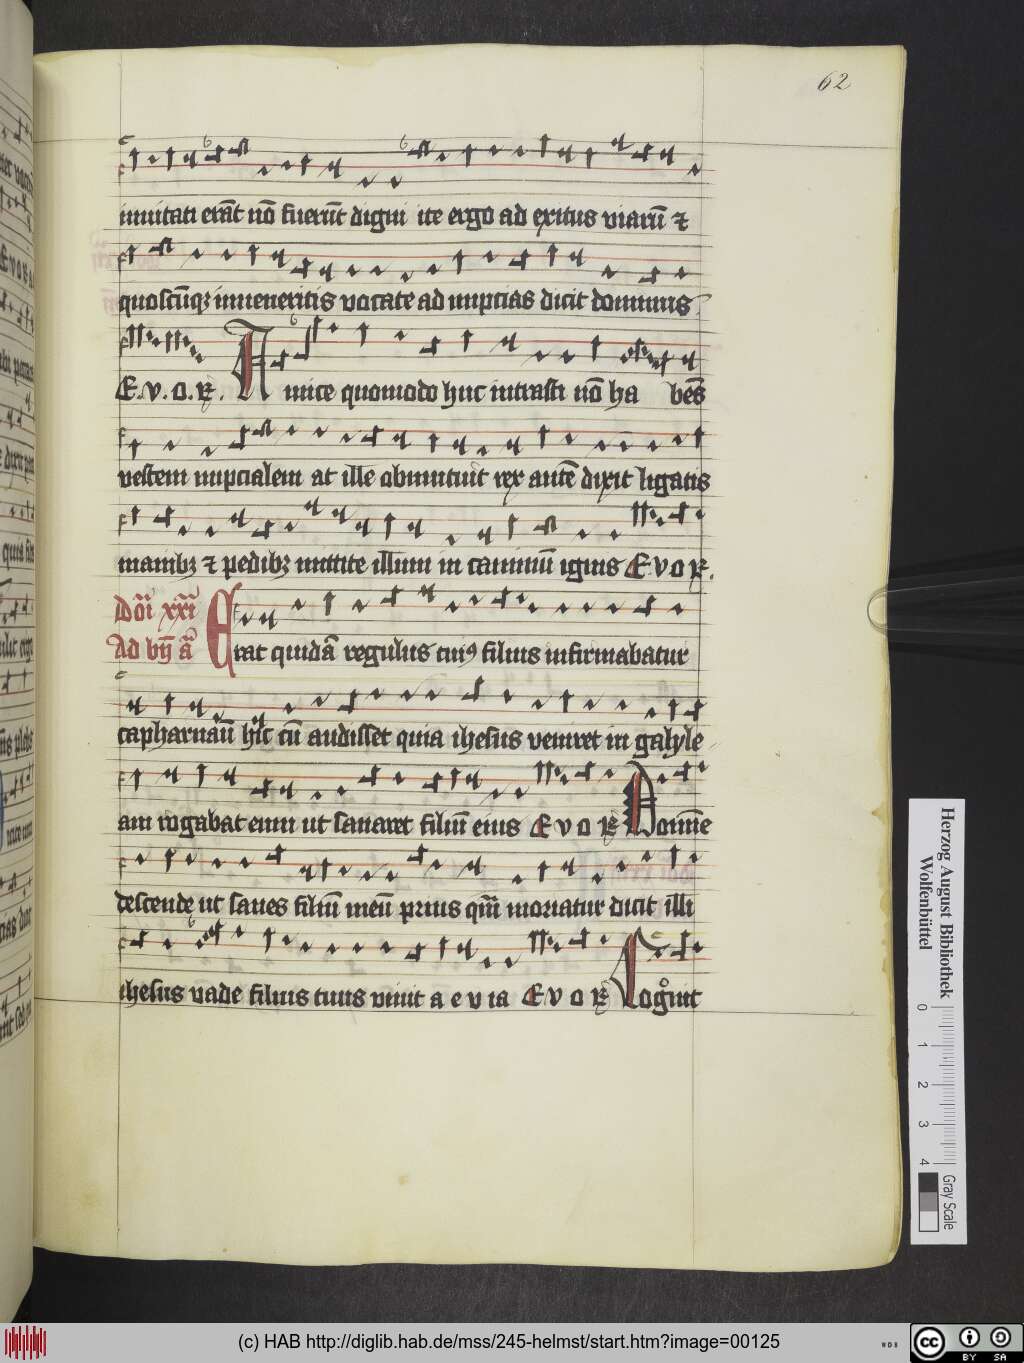 62
inuitati erāt nō fuerūt digni ite ergo ad exitus viarū ⁊
quoscūqꝫ inueneritis vocate ad nupcias dicit dominus
E.v.o.ꝶ. Amice quomodo huc intrasti nō ha bēs
vestem nupcialem at ille obmutuit rex autē dixit ligatis
manibꝫ ⁊ pedibꝫ mittite illum in caminū ignis Evoꝶ.
Dōi xxi
Ad bn̄ a Erat quidā regulus cuiꝰ filius infirmabatur
capharnaū hic cū audisset quia ihesus veniret in galyle
am rogabat eum ut sanaret filiū eius EvoꝶDomīe
descende ut sanes filiū meū prius qm̄ moriatur dicit illi
ihesus vade filius tuus viuit a e v ia Evoꝶ Cogͦuit
Herzog August Bibliothek
Wolfenbüttel
0 1 2 3 4
Gray Scale
(c) HAB http://diglib.hab.de/mss/245-helmst/start.htm?image=00125
WDB
cc BY SA